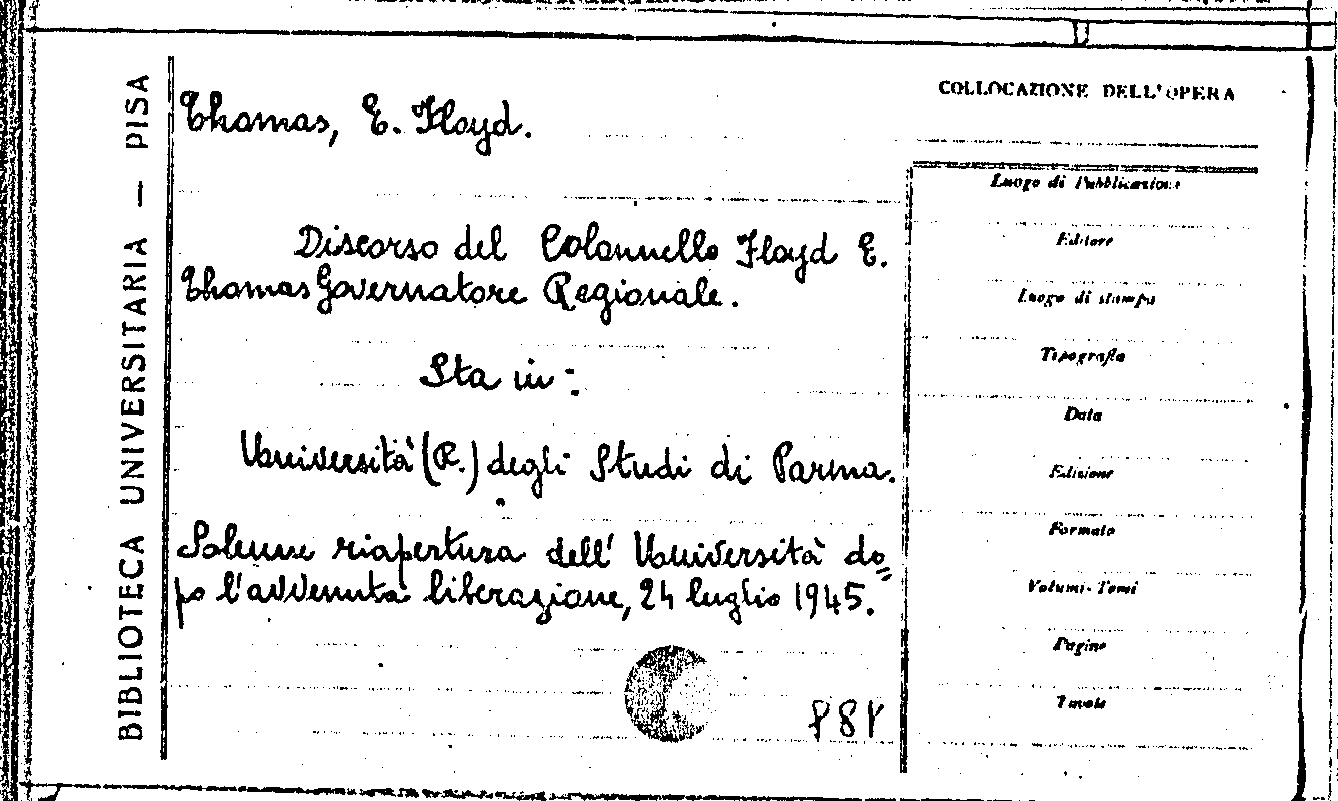 BIBLIOTECA UNIVERSITARIA — PISA
Thomas, E. Floyd.
Discorso del Colonnello Floyd E.
Thomas Governatore Regionale.
Sta in:
Università (R.) degli Studi di Parma.
Solenne riapertura dell'Università do=
po l'avvenuta liberazione, 24 luglio 1945.
COLLOCAZIONE DELL'OPERA
Luogo di Pubblicazione
Editore
Luogo di stampa
Tipografia
Data
Edizione
Formato
Volumi-Tomi
Pagine
Tavole